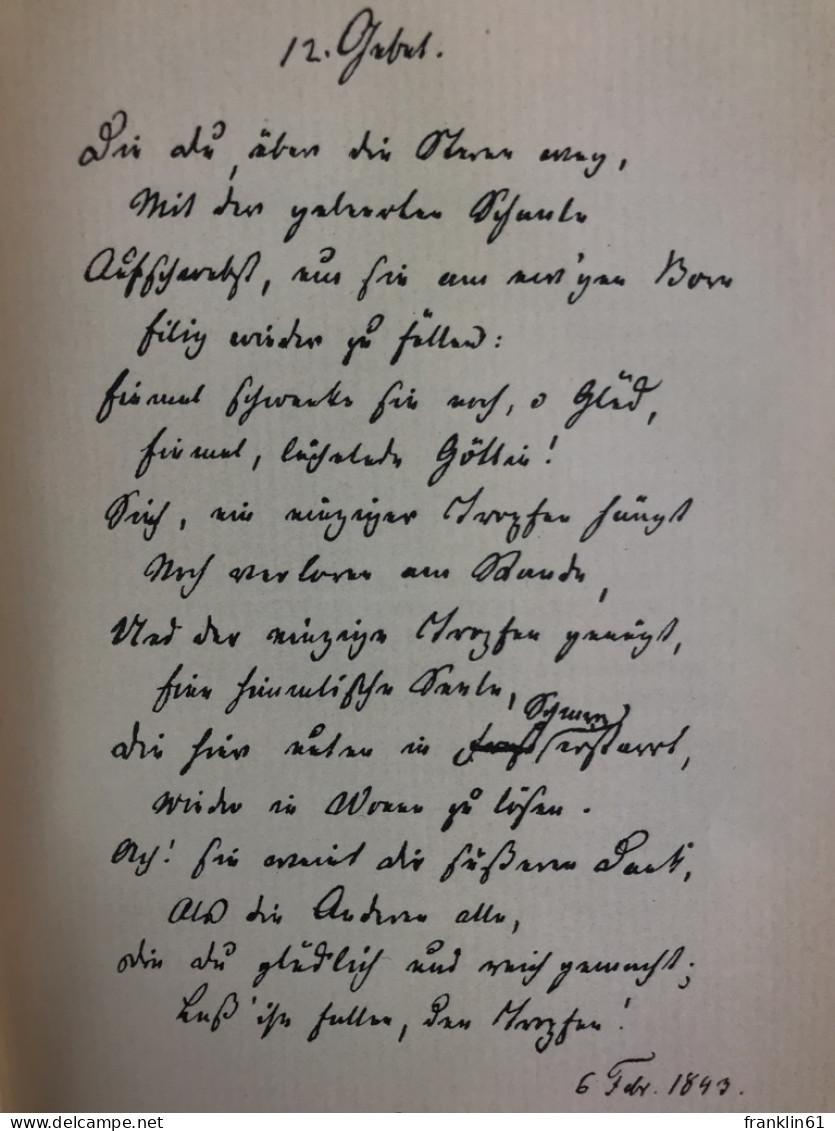 12. Gebet.
Die du, über die Sterne weg,
Mit der geleerten Schaale
Aufschwebst, um sie am ew'gen Born
Eilig wieder zu füllen:
Einmal schwenke sie noch, o Glück,
Einmal, lächelnde Göttin!
Sieh, ein einziger Tropfen hängt
Noch verloren am Rande,
Und der einzige Tropfen genügt,
Eine himmlische Seele,
Schmerz
Die hier unten in erstarrt,
Wieder in Wonne zu lösen.
Ach! sie weint dir süßeren Dank,
Als die Anderen alle,
Die du glücklich und reich gemacht;
Laß' ihn fallen, den Tropfen!
6 Febr. 1843.
franklin61